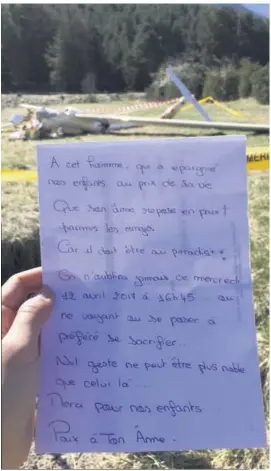 MERI
A cet homme qui a épargné
nos enfants au prix de sa vie
Que son âme repose en paix
parmis les anges.
Car il doit être au paradis..
On n'oubliera jamais ce mercredi
12 avril 2017 à 16h45 où
ne voyant où se poser a
préféré se sacrifier...
Nul geste ne peut être plus noble
que celui là...
Merci pour nos enfants
Paix à Ton Âme.